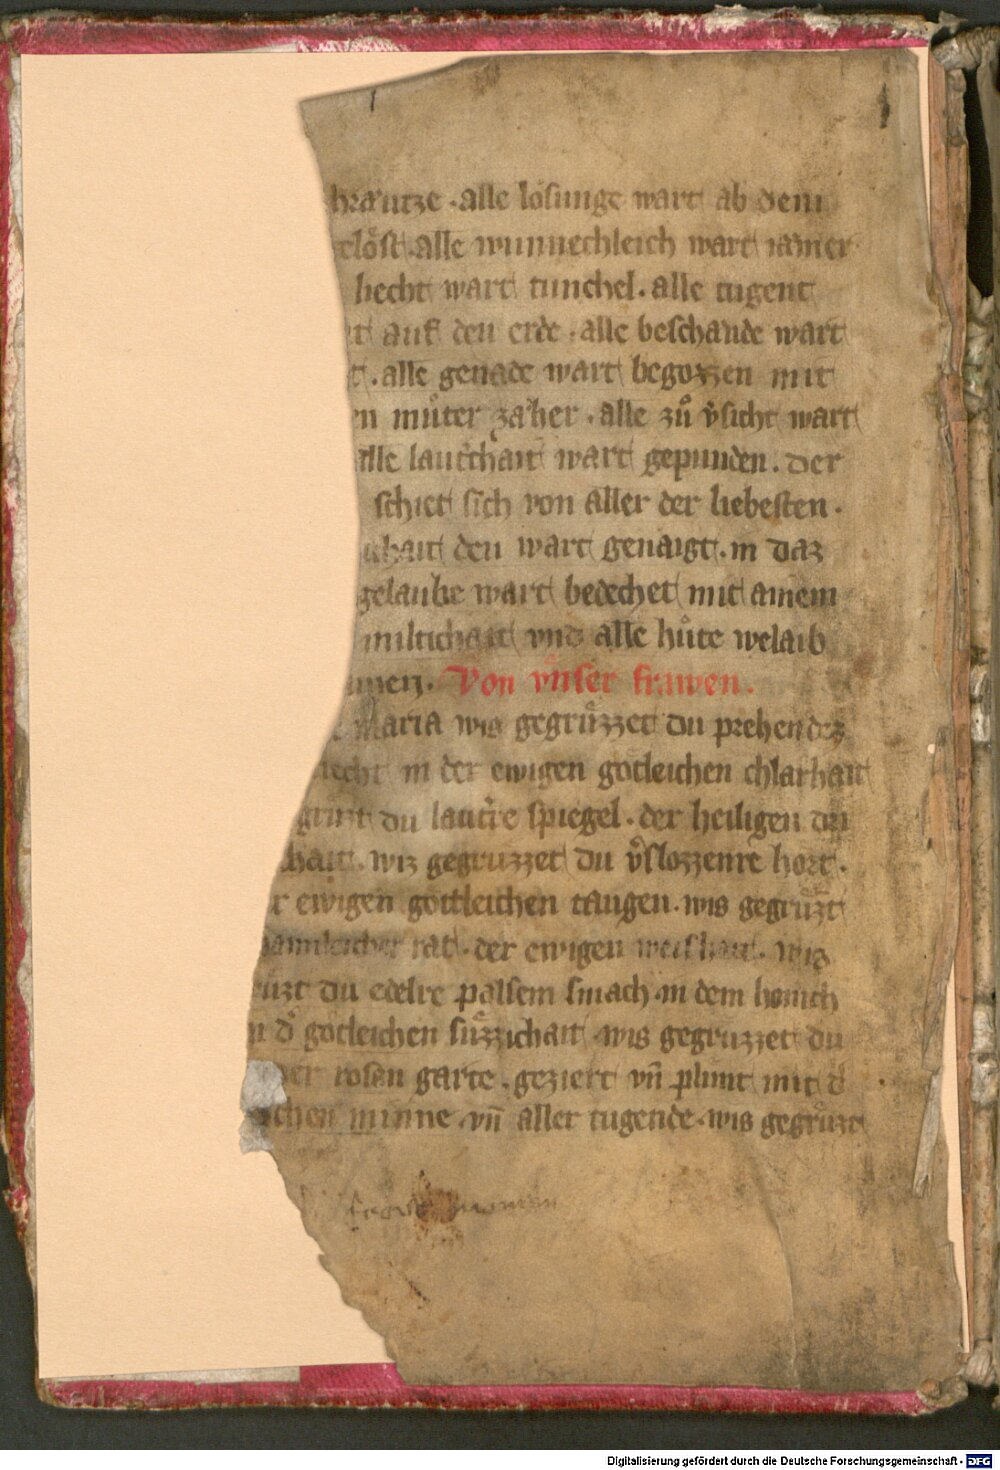 chraͤutze · alle loͤsunge wart ab dem
eloͤst · alle wunnechleich wart iamer
liecht wart tunchel · alle tugent
t auf den erde · alle beschande wart
t · alle genade wart begozzen mit
en muͦter zaͤher · alle zuͦ v̾sicht wart
alle laut̾chait wart gepunden · der
schiet sich von aller der liebesten ·
chait den wart genaigt · in daz
gelaube wart bedechet mit ainem
miltichait vnd alle huͦte welaib
Von vͤnser frawen ·
Maria wis gegruͤzzet du prehendez
liecht in der ewigen gotleichen chlarhait
gruͤzt du laut̾re spiegel · der heiligen dri
hait · wis gegruzzet du v̾slozzenre hort ·
r ewigen gottleichen taugen · wis gegruͤzt
rat · der ewigen weishait · wis
ruͤzt du edelre palsem smach in dem honich
n d̾ gotleichen suͤzzichait · wis gegruzzet du
der rosen garte · geziert vn̄ plunt mit d̾
ichen minne · vn̄ aller tugende · wis gegruͤzt
Digitalisierung gefördert durch die Deutsche Forschungsgemeinschaft - DFG